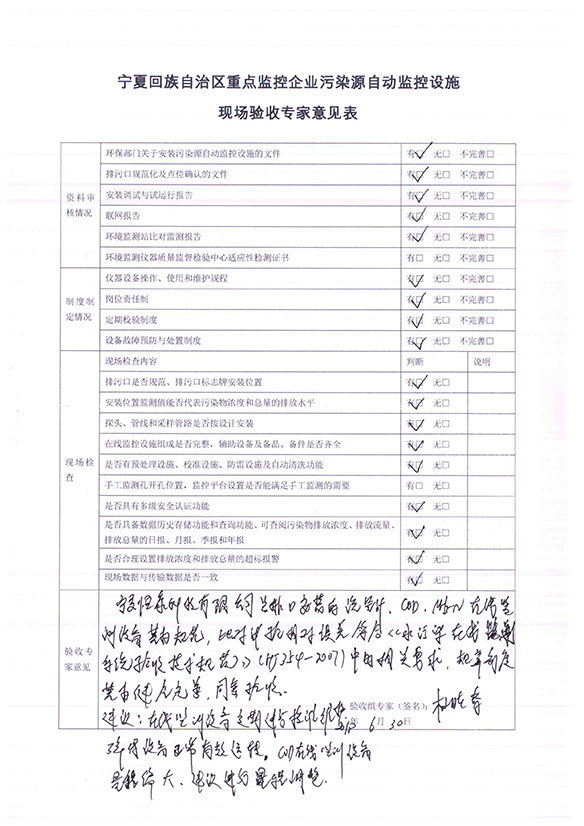 宁夏回族自治区重点监控企业污染源自动监控设施
现场验收专家意见表
资料审核情况
环保部门关于安装污染源自动监控设施的文件 有☑ 无□ 不完善□
排污口规范化及点位确认的文件 有☑ 无□ 不完善□
安装调试与试运行报告 有☑ 无□ 不完善□
联网报告 有☑ 无□ 不完善□
环境监测站比对监测报告 有☑ 无□ 不完善□
环境监测仪器质量监督检验中心适应性检测证书 有□ 无□ 不完善□
制度制定情况
仪器设备操作、使用和维护规程 有☑ 无□ 不完善□
岗位责任制 有☑ 无□ 不完善□
定期校验制度 有☑ 无□ 不完善□
设备故障预防与处置制度 有☑ 无□ 不完善□
现场检查
现场检查内容 判断 说明
排污口是否规范、排污口标志牌安装位置 有☑ 无□
安装位置监测值能否代表污染物浓度和总量的排放水平 有☑ 无□
探头、管线和采样管路是否按设计安装 有☑ 无□
在线监控设施组成是否完整，辅助设备及备品、备件是否齐全 有☑ 无□
是否有预处理设施、校准设施、防雷设施及自动清洗功能 有☑ 无□
手工监测孔开孔位置，监控平台设置是否能满足手工监测的需要 有□ 无□
是否具有多级安全认证功能 有☑ 无□
是否具备数据历史存储功能和查询功能、可查阅污染物排放浓度、排放流量、
排放总量的日报、月报、季报和年报 有☑ 无□
是否合理设置排放浓度和排放总量的超标报警 有☑ 无□
现场数据与传输数据是否一致 有☑ 无□
验收专家意见
有限公司总排口安装的流量计、COD、NH₃-N在线监
测设备 比对中检测相对误差符合《水污染在线监测
系统验收技术规范》（HJ354-2007）中的相关要求，规章制度
健全完善，同意验收。
建议：在线监测设备定期进行校准
验收组专家（签名）：
年 6 月 30 日
确保设备正常有效运转。COD在线监测设备
量程偏大，建议进行量程调整。